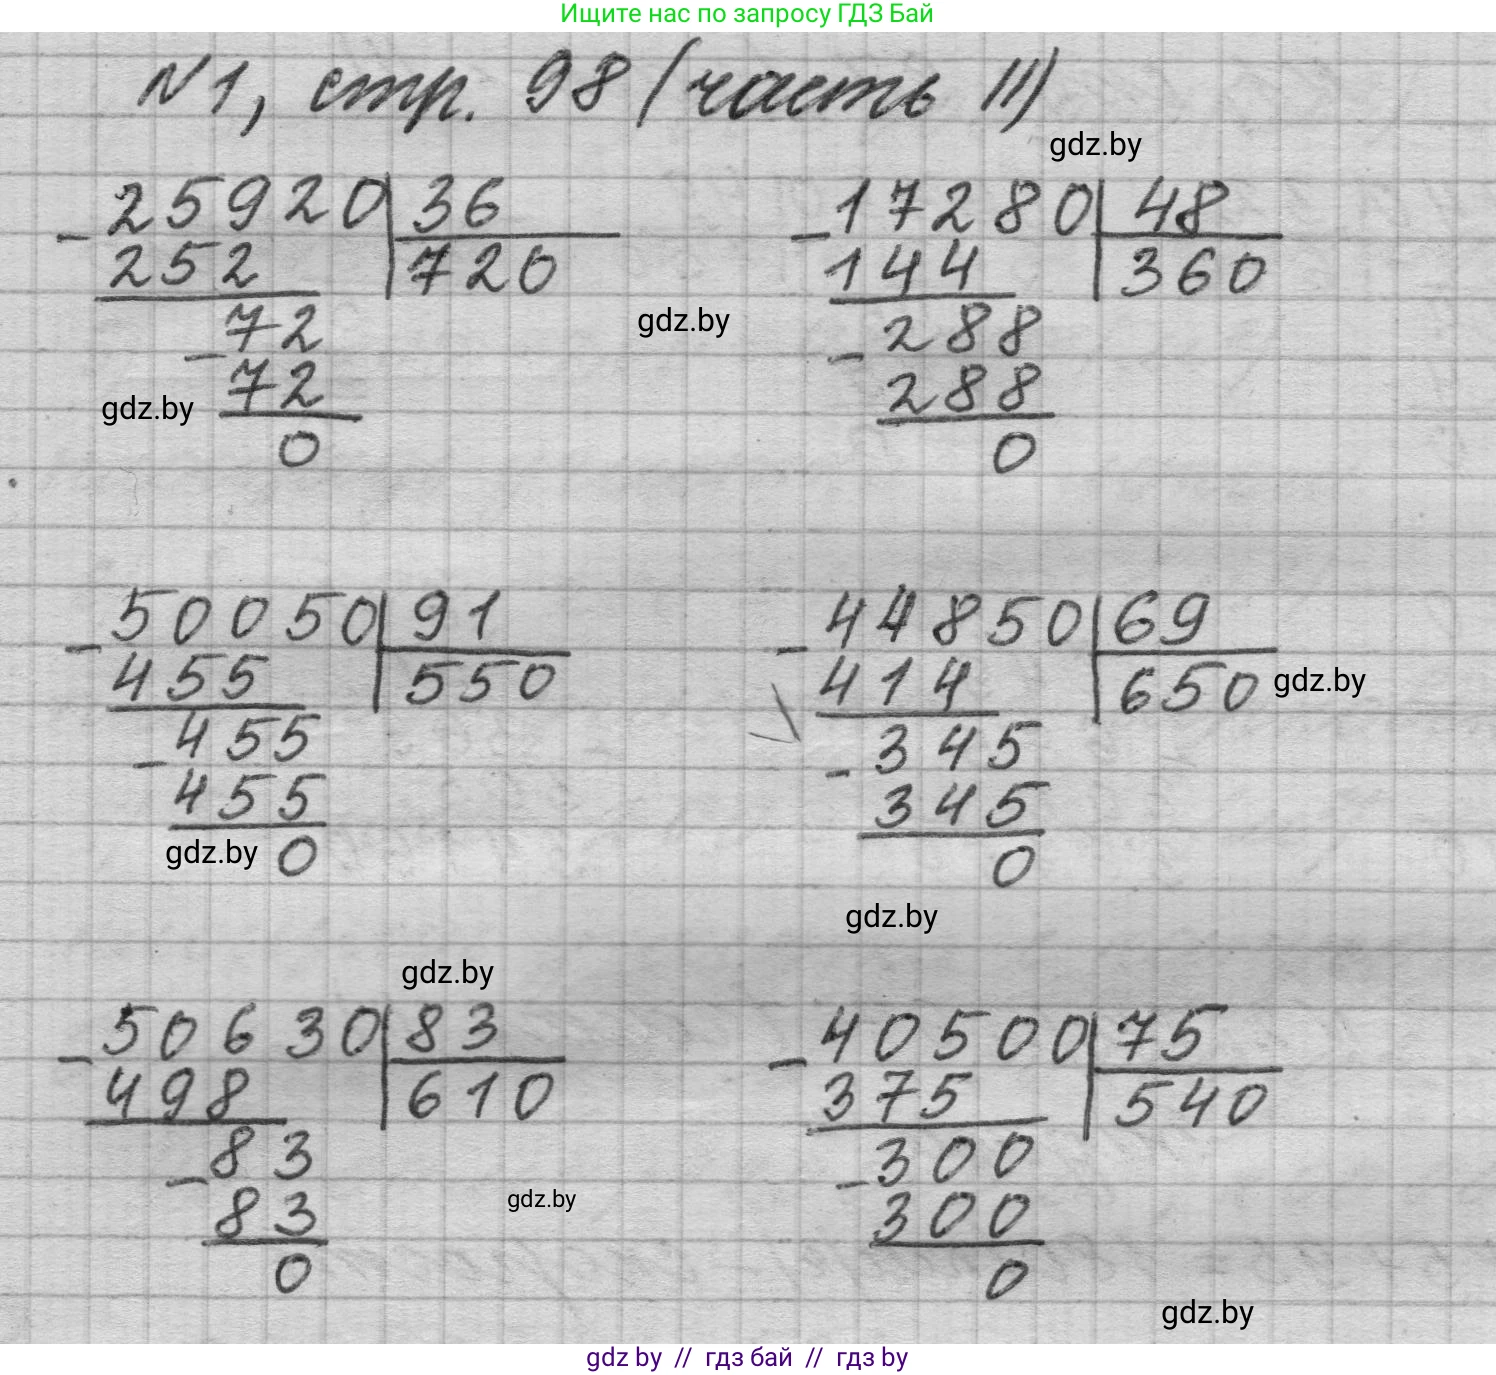 Ищите нас по запросу ГДЗ Бай
№1, стр. 98 (часть II)
gdz.by
25920 36
- 252 720
72
- 72
0
gdz.by
gdz.by
17280 48
- 144 360
288
- 288
0
50050 91
- 455 550
455
- 455
0
gdz.by
44850 69
- 414 650
gdz.by
345
- 345
0
gdz.by
gdz.by
50630 83
- 498 610
83
- 83
0
gdz.by
40500 75
- 375 540
300
- 300
0
gdz.by
gdz by // гдз бай // гдз by